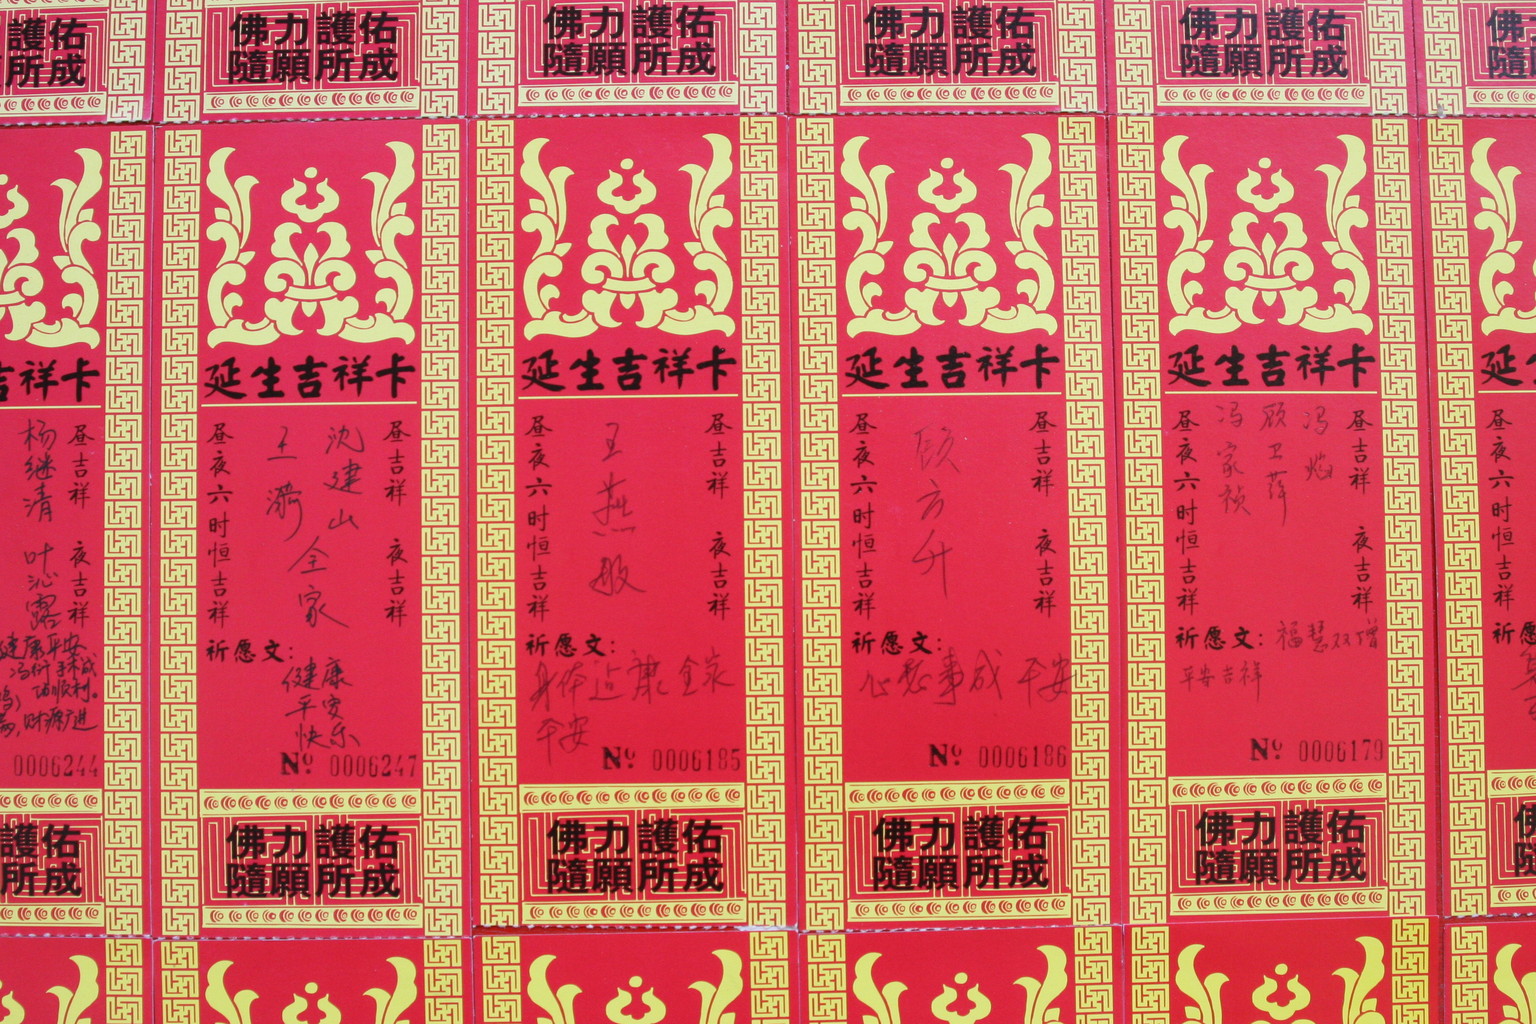 護佑
所成
佛力護佑
隨願所成
佛力護佑
隨願所成
佛力護佑
隨願所成
佛力護佑
隨願所成
佛
隨
吉祥卡
昼吉祥 夜吉祥
杨继清 叶沁露
健康平安
手术成
功顺利。
财源广进
0006244
護佑
所成
延生吉祥卡
昼吉祥 夜吉祥
沈建山
王漪
全家
昼夜六时恒吉祥
祈愿文:
健康
平安
快乐
Nº 0006247
佛力護佑
隨願所成
延生吉祥卡
昼吉祥 夜吉祥
王燕敏
昼夜六时恒吉祥
祈愿文:
身体近康 全家
平安
Nº 0006185
佛力護佑
隨願所成
延生吉祥卡
昼吉祥 夜吉祥
顾方升
昼夜六时恒吉祥
祈愿文:
心想事成 平安
Nº 0006186
佛力護佑
隨願所成
延生吉祥卡
昼吉祥 夜吉祥
顾卫萍
冯家祯
昼夜六时恒吉祥
祈愿文: 福慧双增
平安吉祥
Nº 0006179
佛力護佑
隨願所成
延
昼夜六时恒吉祥
祈